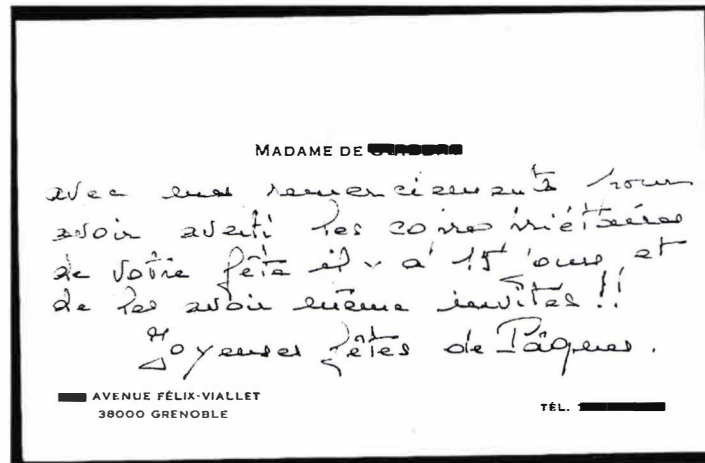 MADAME DE
avec mes remerciements pour
avoir averti les copropriétaires
de votre fête il y a 15 jours, et
de les avoir même invités !!
Joyeuses fêtes de Pâques.
AVENUE FÉLIX-VIALLET
38000 GRENOBLE
TÉL.